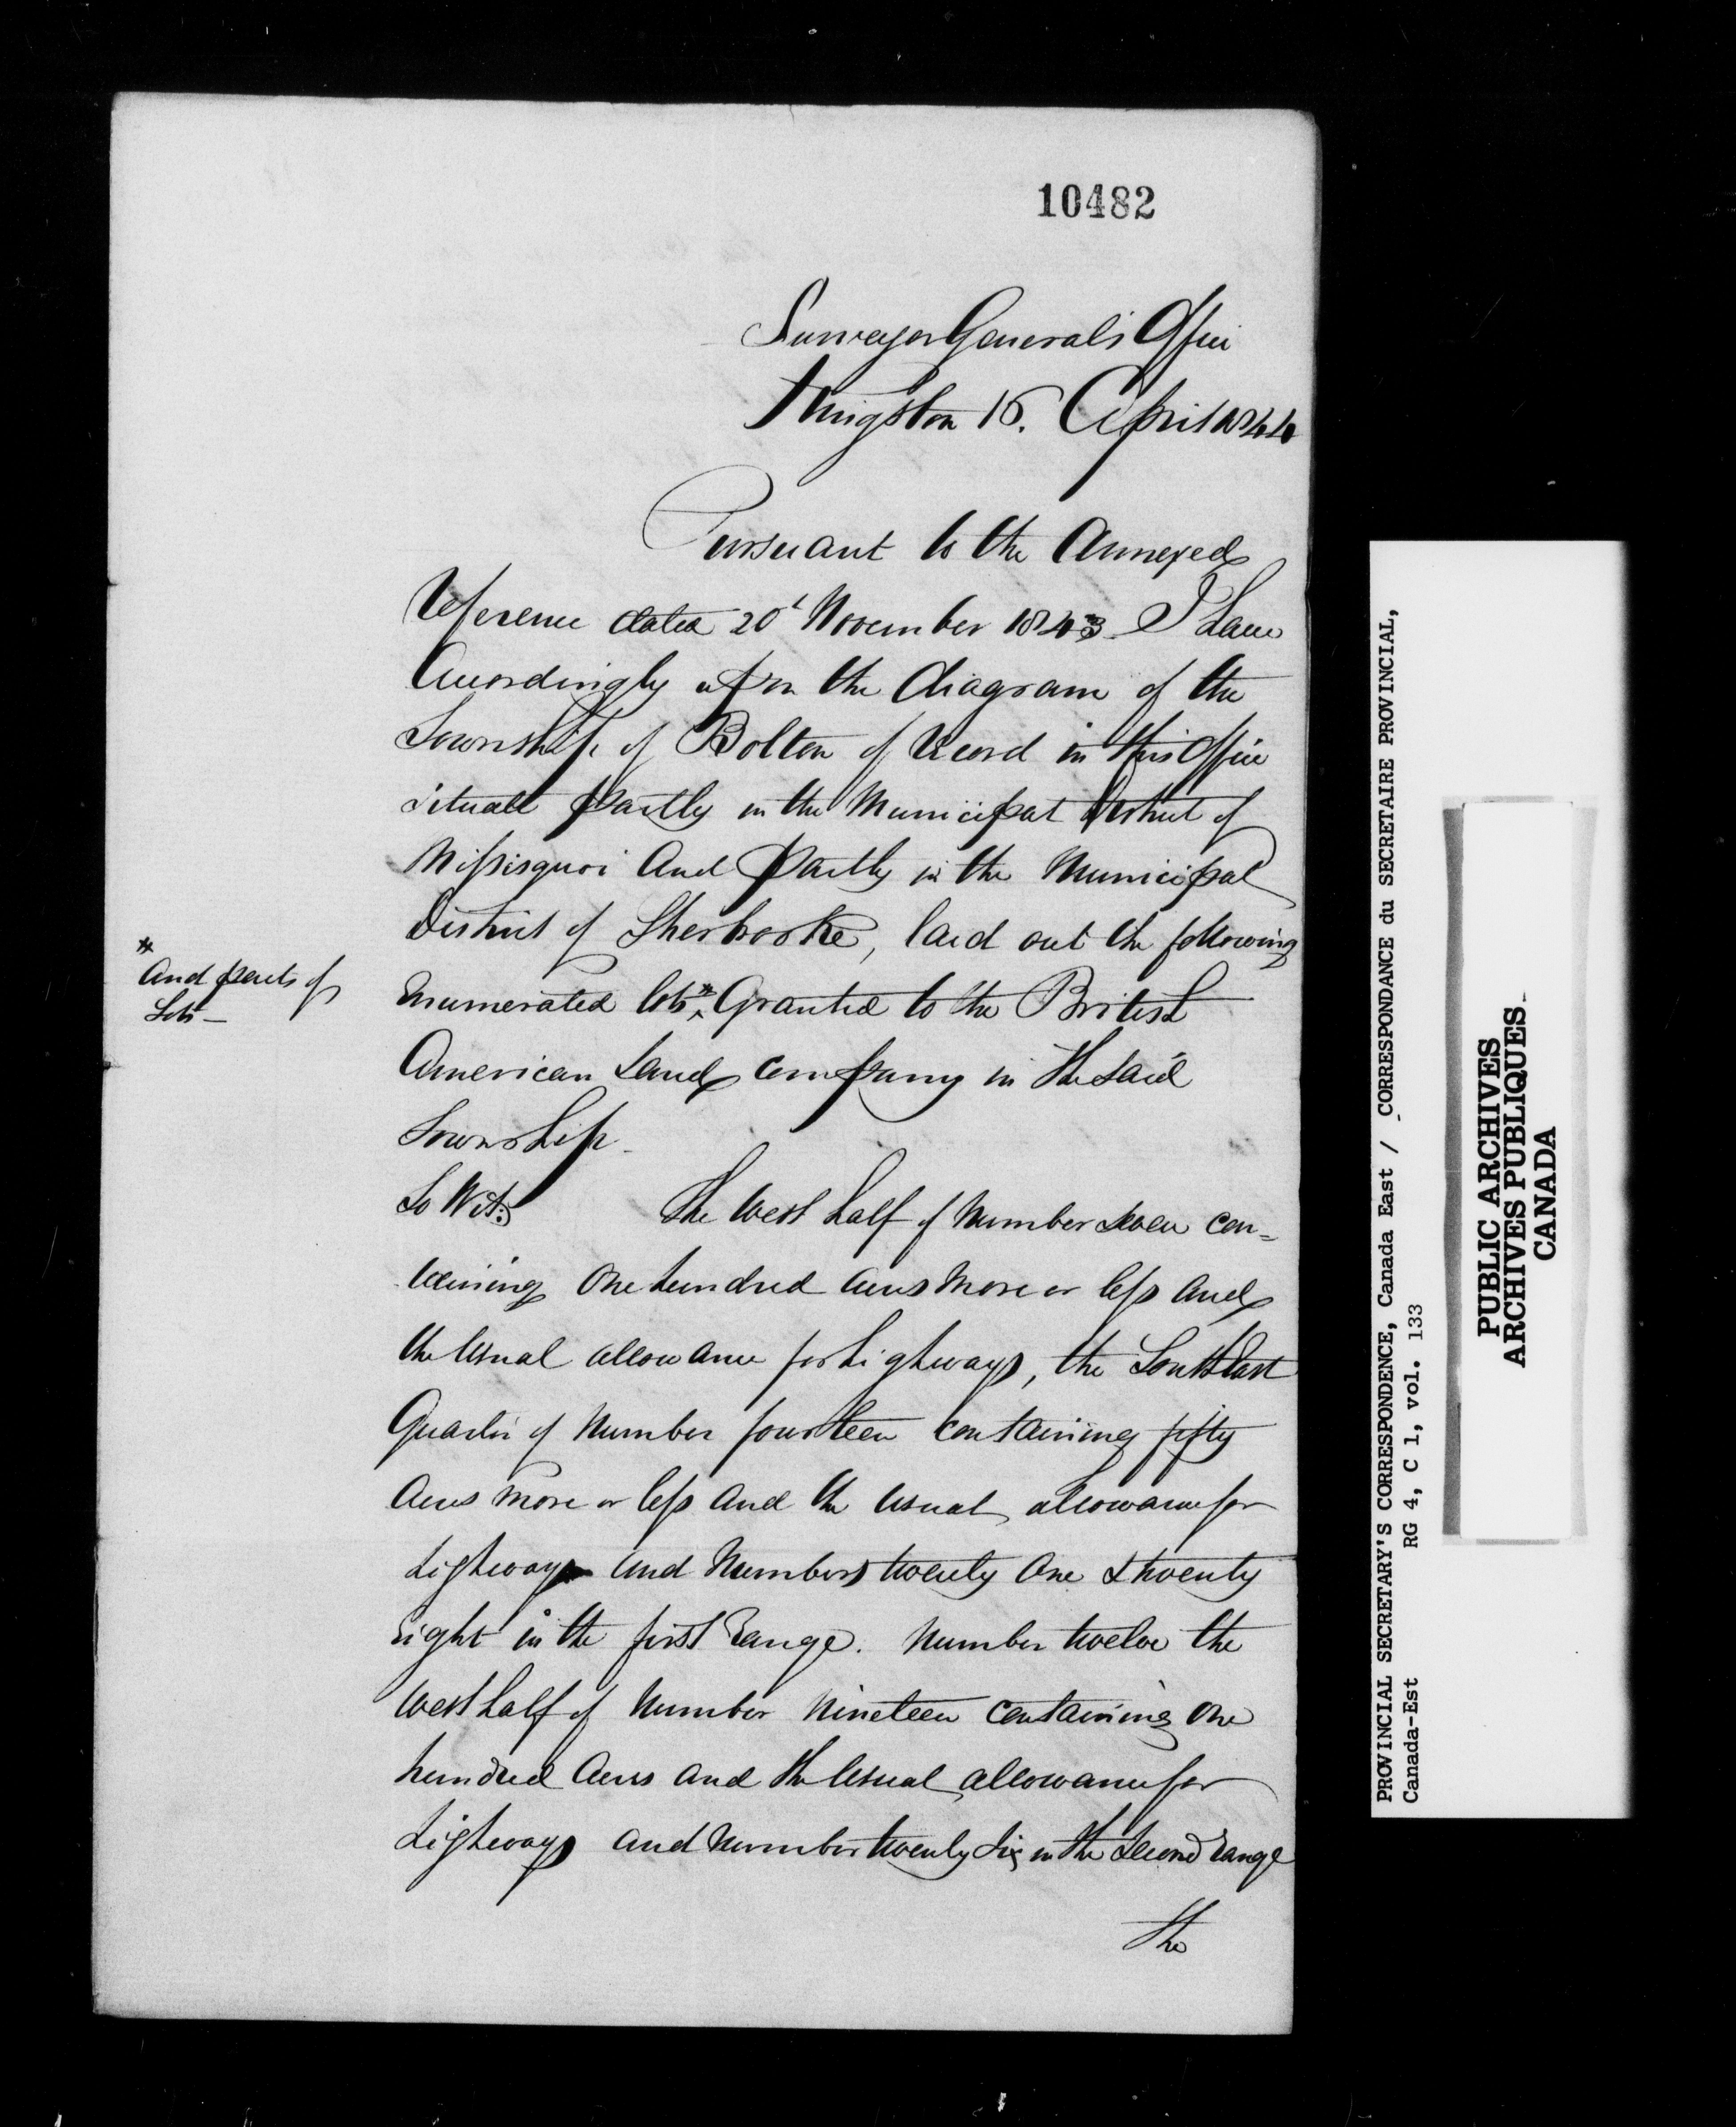 10482
Surveyor General's Office
Kingston 16. April 1844
Pursuant to the Annexed
Reference dated 20t November 1843. I have
Accordingly upon the diagram of the
Township of Bolton of Record in this Office
situate partly in the Municipal District of
Missisquoi And partly in the Municipal
District of Sherbrooke, laid out the following
Enumerated lots * Granted to the British
American Land Company in the said
Township.
* And parts of
Lots —
To Wit:
The West half of Number Seven con=
taining One hundred acres more or less and
the Usual allowance for highways, the South East
Quarter of Number fourteen containing fifty
Acres more or less and the Usual allowance for
highways and Numbers twenty One & twenty
Eight in the first Range. Number twelve the
West half of Number Nineteen containing One
hundred Acres and the Usual allowance for
highways and Number twenty Six in the Second Range
The
PROVINCIAL SECRETARY'S CORRESPONDENCE, Canada East / CORRESPONDANCE du SECRETAIRE PROVINCIAL,
Canada-Est RG 4, C 1, vol. 133
PUBLIC ARCHIVES
ARCHIVES PUBLIQUES
CANADA